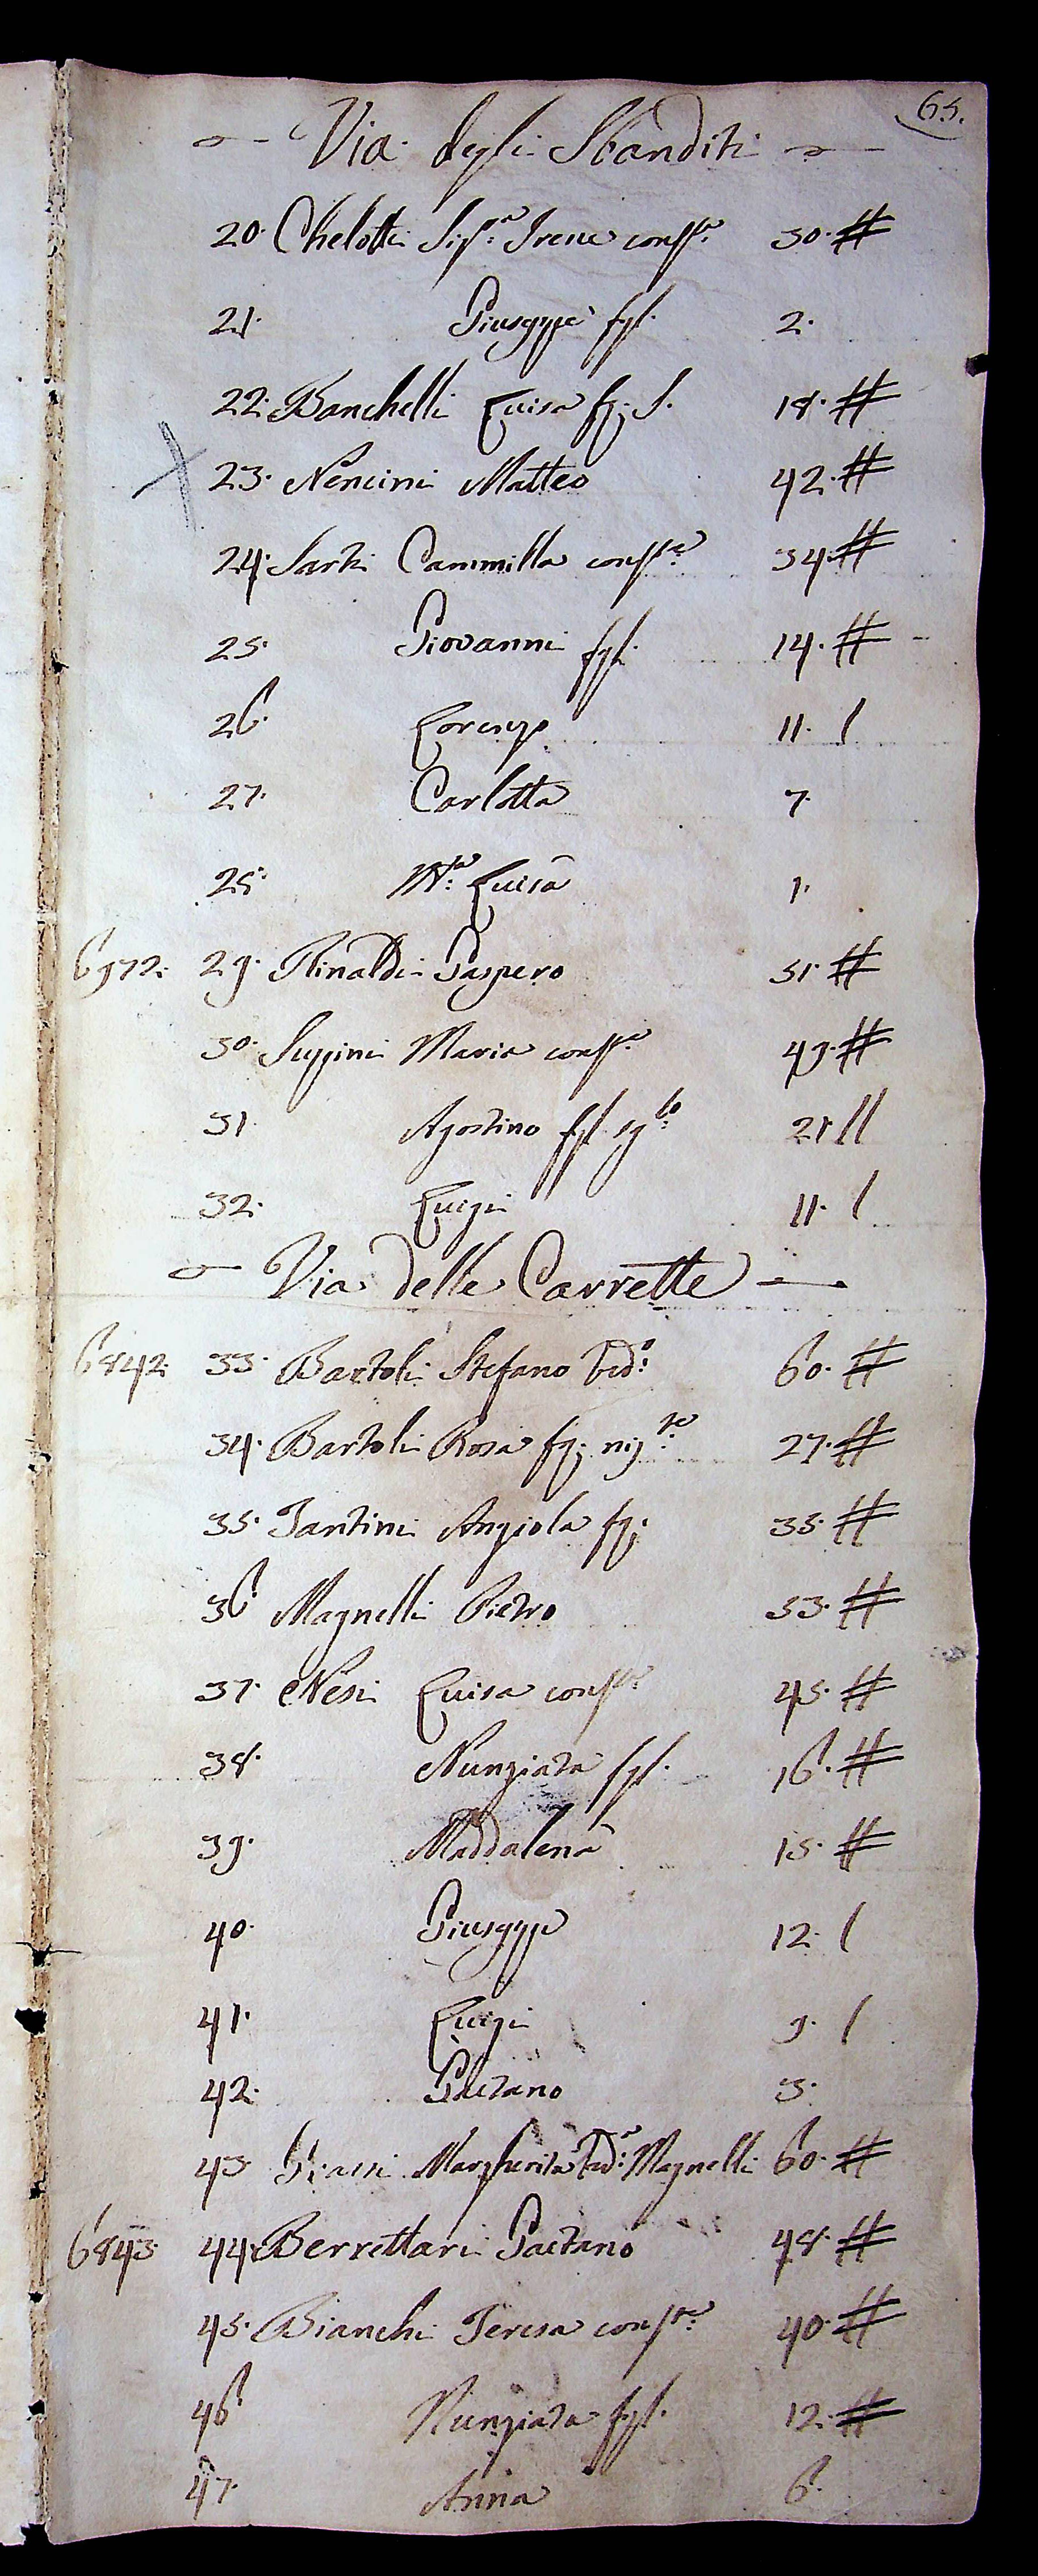 65.
Via degli Sbanditi
20. Chelotti Sig.ª Irene cons.te 30. #
21. Giuseppe fgl. 2.
22. Banchelli Luisa fg. S. 18. #
23. Nencini Matteo 42. #
24. Sarti Cammilla cons.te 34. #
25. Giovanni fgl. 14. #
26. Lorenzo 11. /
27. Carlotta 7.
28. M.ª Luisa 1.
6972. 29. Rinaldi Gaspero 51. #
30. Suppini Maria cons.te 49. #
31. Agostino fgl. sg.lo 21 //
32. Luigi 11. /
Via delle Carrette
6842. 33. Bartoli Stefano Ved.o 60. #
34. Bartoli Rosa fg. nig.te 27. #
35. Tantini Angiola fg. 35. #
36. Magnelli Pietro 53. #
37. Nesi Luisa cons.te 45. #
38. Nunziata fgl. 16. #
39. Maddalena 15. #
40. Giuseppe 12. /
41. Luigi 9. /
42. Gaetano 3.
43. Grassi Margherita Ved.ª Magnelli 60. #
6843. 44. Berrettari Gaetano 48. #
45. Bianchi Teresa cons.te 40. #
46. Nunziata fgl. 12. #
47. Anna 6.